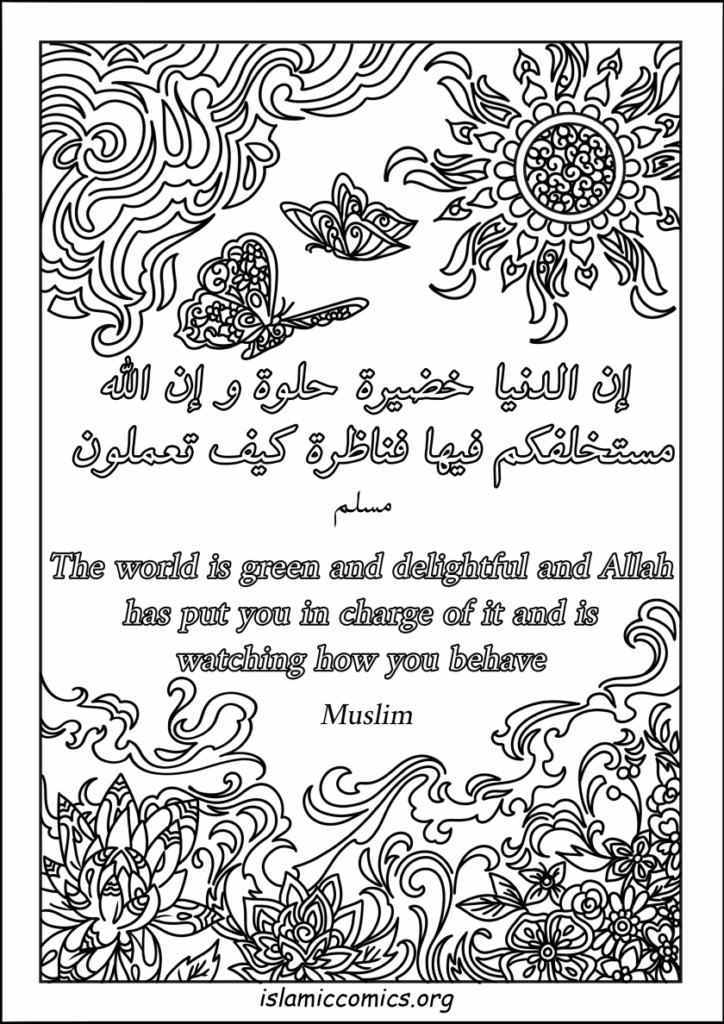 إن الدنيا خضيرة حلوة و إن الله
مستخلفكم فيها فناظرة كيف تعملون
مسلم
The world is green and delightful and Allah
has put you in charge of it and is
watching how you behave
Muslim
islamiccomics.org